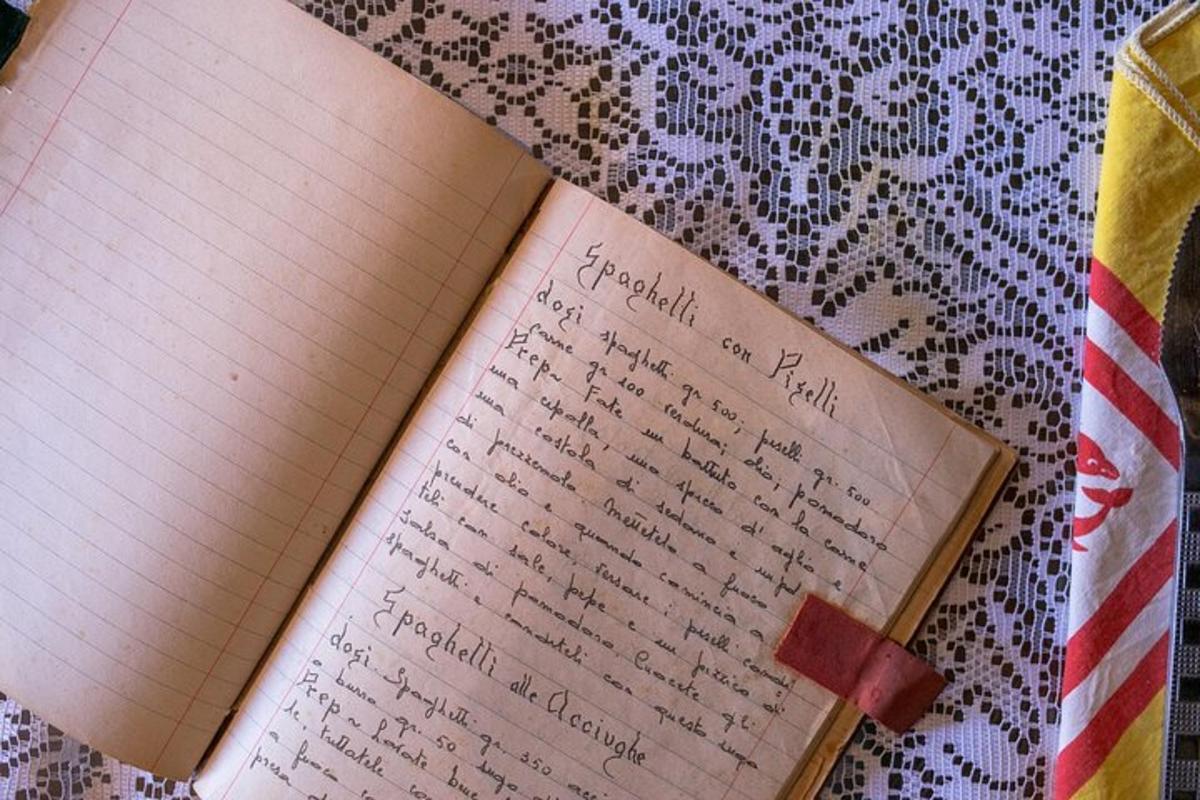 Spaghetti con Piselli
dosi spaghetti gr. 500; piselli gr. 500
carne gr 100 verdura; olio; pomodoro
Prep~ Fate un battuto con la carne
una cipolla, uno specco d'aglio e
una costola di sedano e un po'
di prezzemolo. Mettetelo a fuoco
con olio e quando comincia a
prendere colore, versare i piselli. condi
teli con sale, pepe e un pizzico di
salsa di pomodoro. Cuocete gli
spaghetti e conditeli con questo sugo
Spaghetti alle Acciughe
dosi Spaghetti gr. 350 acci
burro gr. 50 sugo di
Prep~ Lavate bene
le, tuffatele
a fuoco
presa